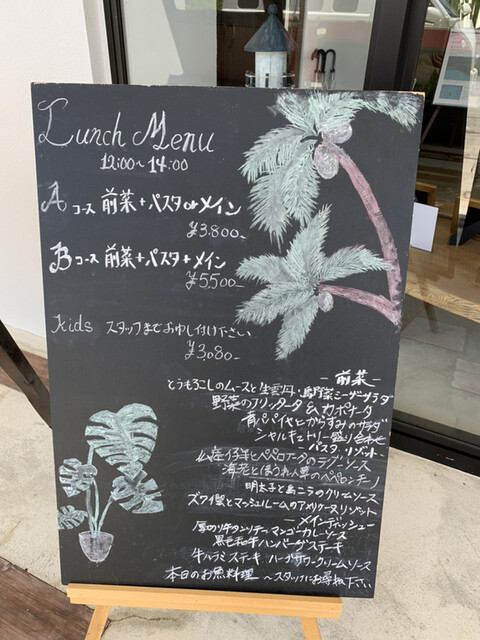 Lunch Menu
12:00~14:00
A コース 前菜+パスタorメイン
¥3,800-
B コース 前菜+パスタ+メイン
¥5,500-
Kids スタッフまでお申し付け下さい
¥3,080-
-前菜-
とうもろこしのムースと生雲丹・島野菜シーザーサラダ
野菜のフリッタータ & カポナータ
青パパイヤとからすみのサラダ
シャルキュトリー盛り合わせ
-パスタ、リゾット-
仔羊とペペロナータのラグーソース
海老とほうれん草のペペロンチーノ
明太子と島ニラのクリームソース
ズワイ蟹とマッシュルームのアメリケーヌリゾット
-メインディッシュ-
マンゴーカレーソース
黒毛和牛ハンバーグステーキ
牛ハラミステーキ ハーブサワークリームソース
本日のお魚料理 へスタッフにお尋ね下さい